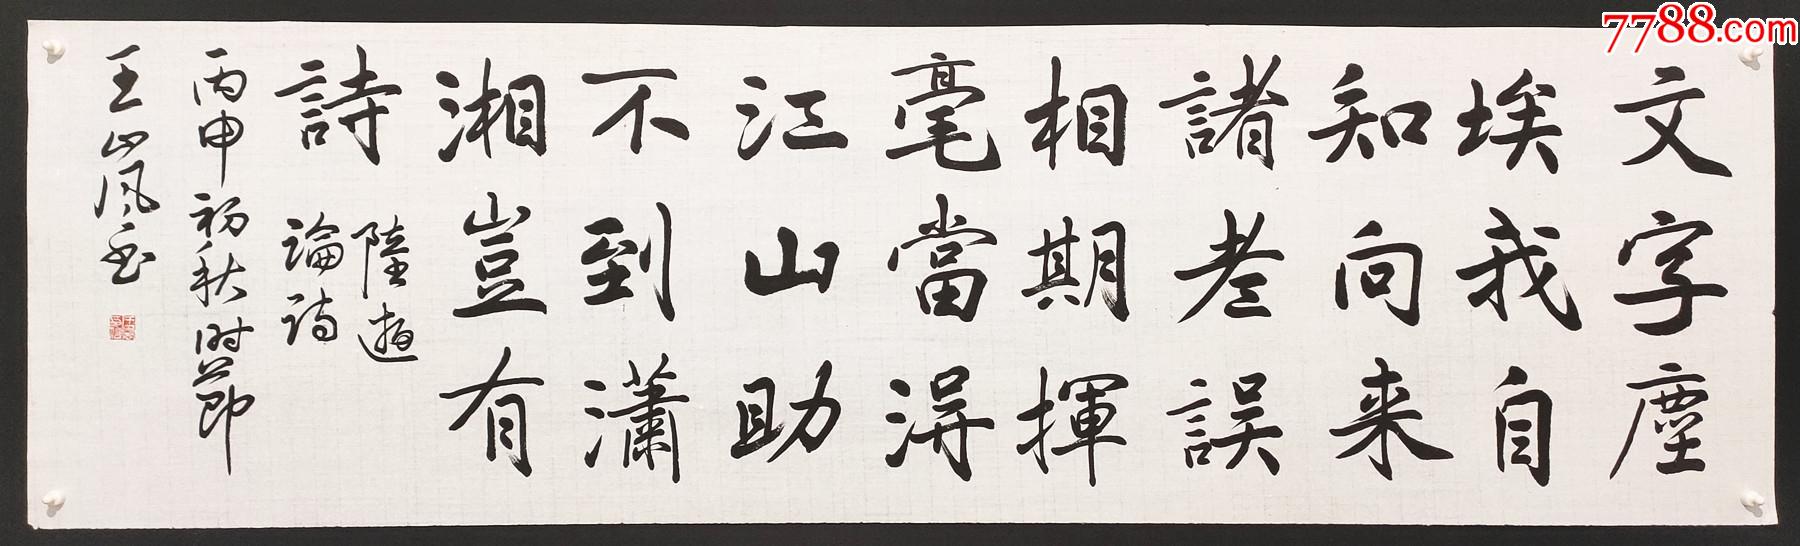 7788.com
文字塵
埃我自
知向来
諸老誤
相期揮
毫當得
江山助
不到瀟
湘豈有
詩
陸遊
論詩
丙申初秋时節
王岚书